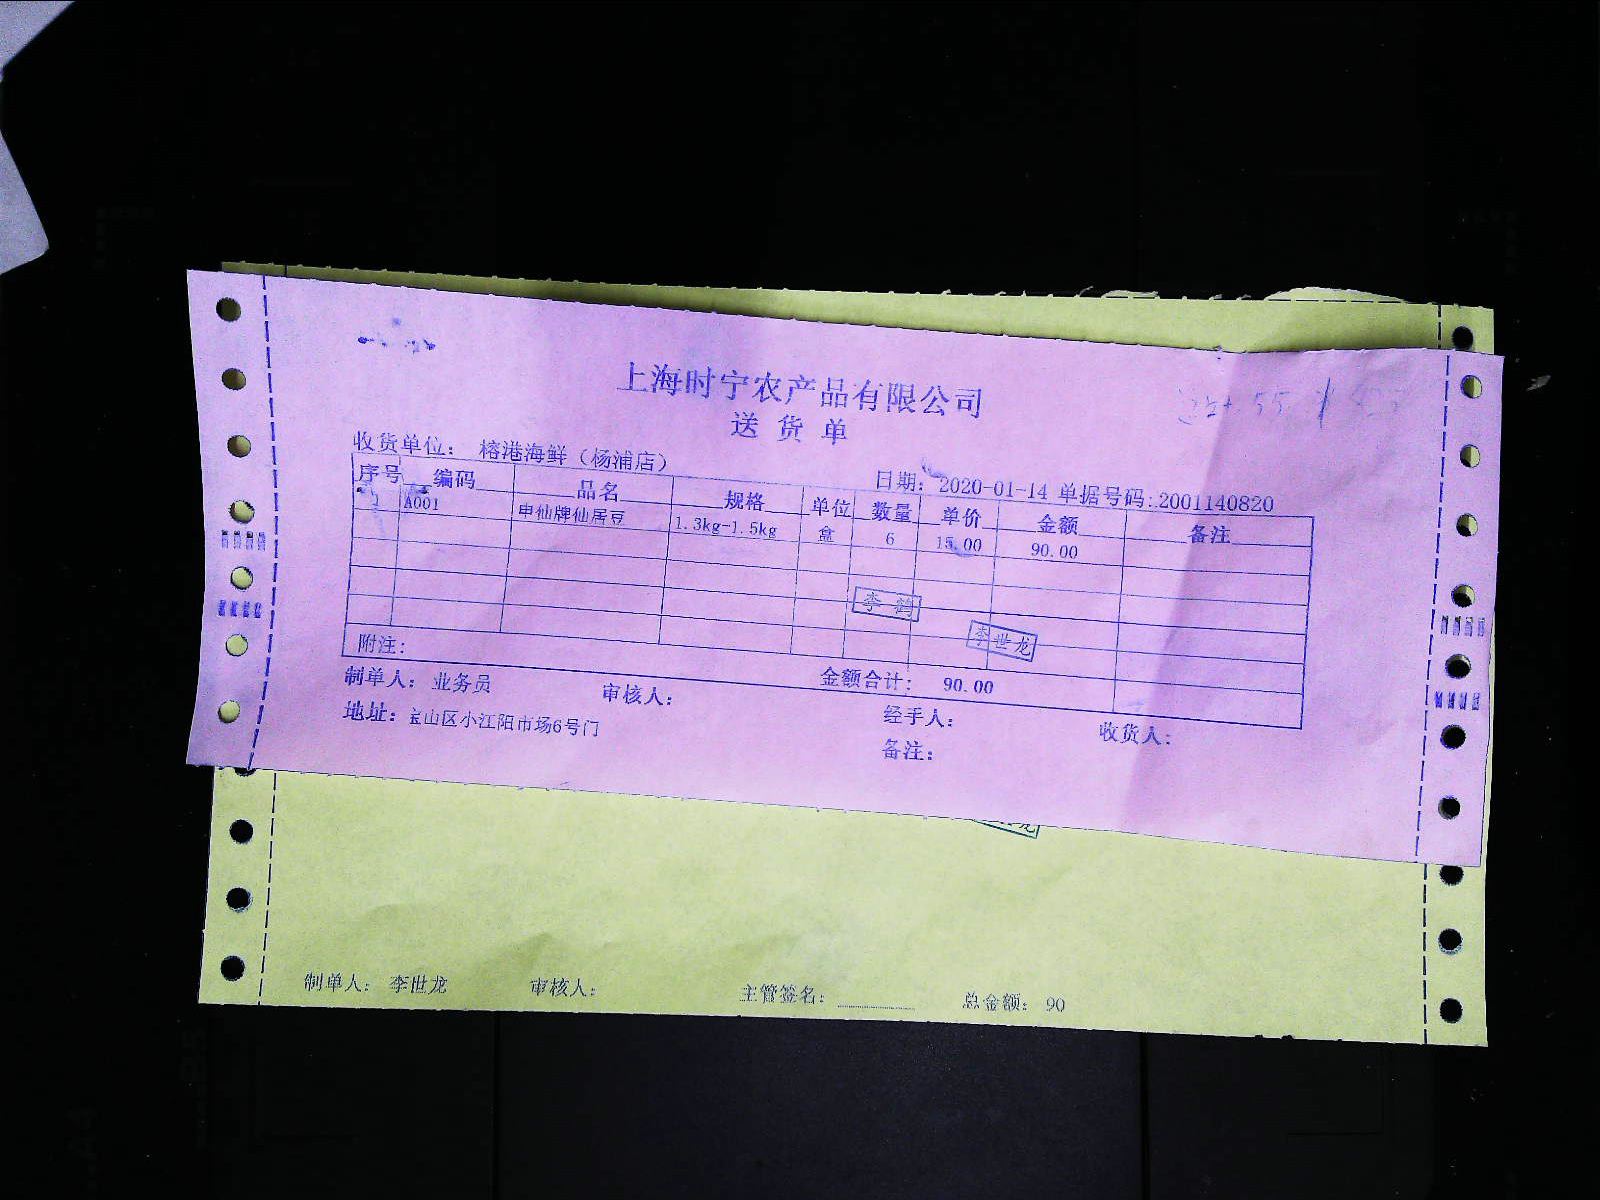 上海时宁农产品有限公司
送货单
收货单位： 榕港海鲜（杨浦店） 日期： 2020-01-14 单据号码：2001140820
序号 编码 品名 规格 单位 数量 单价 金额 备注
1 A001 申仙牌仙居豆 1.3kg-1.5kg 盒 6 15.00 90.00
李鹤
李世龙
附注：
金额合计： 90.00
制单人： 业务员 审核人： 经手人： 收货人：
地址：宝山区小江阳市场6号门 备注：
制单人： 李世龙 审核人： 主管签名： 总金额： 90